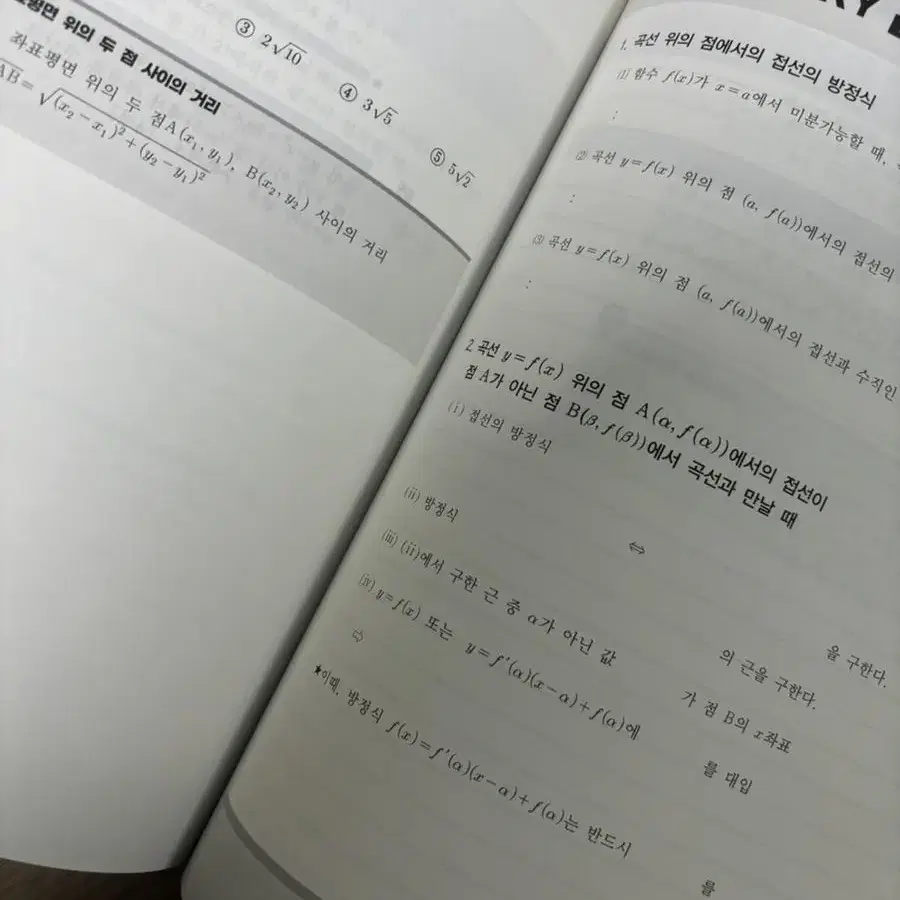 ③ 2√10
④ 3√5
⑤ 5√2
평면 위의 두 점 사이의 거리
좌표평면 위의 두 점 A(x₁, y₁), B(x₂, y₂) 사이의 거리
AB=√((x₂-x₁)²+(y₂-y₁)²)
1. 곡선 위의 점에서의 접선의 방정식
(1) 함수 f(x)가 x=a에서 미분가능할 때,
:
(2) 곡선 y=f(x) 위의 점 (a, f(a))에서의 접선의
:
(3) 곡선 y=f(x) 위의 점 (a, f(a))에서의 접선과 수직인
:
2. 곡선 y=f(x) 위의 점 A(α, f(α))에서의 접선이
점 A가 아닌 점 B(β, f(β))에서 곡선과 만날 때
(i) 접선의 방정식 을 구한다.
(ii) 방정식 ⇔ 의 근을 구한다.
(iii) (ii)에서 구한 근 중 α가 아닌 값 가 점 B의 x좌표
(iv) y=f(x) 또는 y=f'(α)(x-α)+f(α)에 를 대입
⇨
★이때, 방정식 f(x)=f'(α)(x-α)+f(α)는 반드시 를